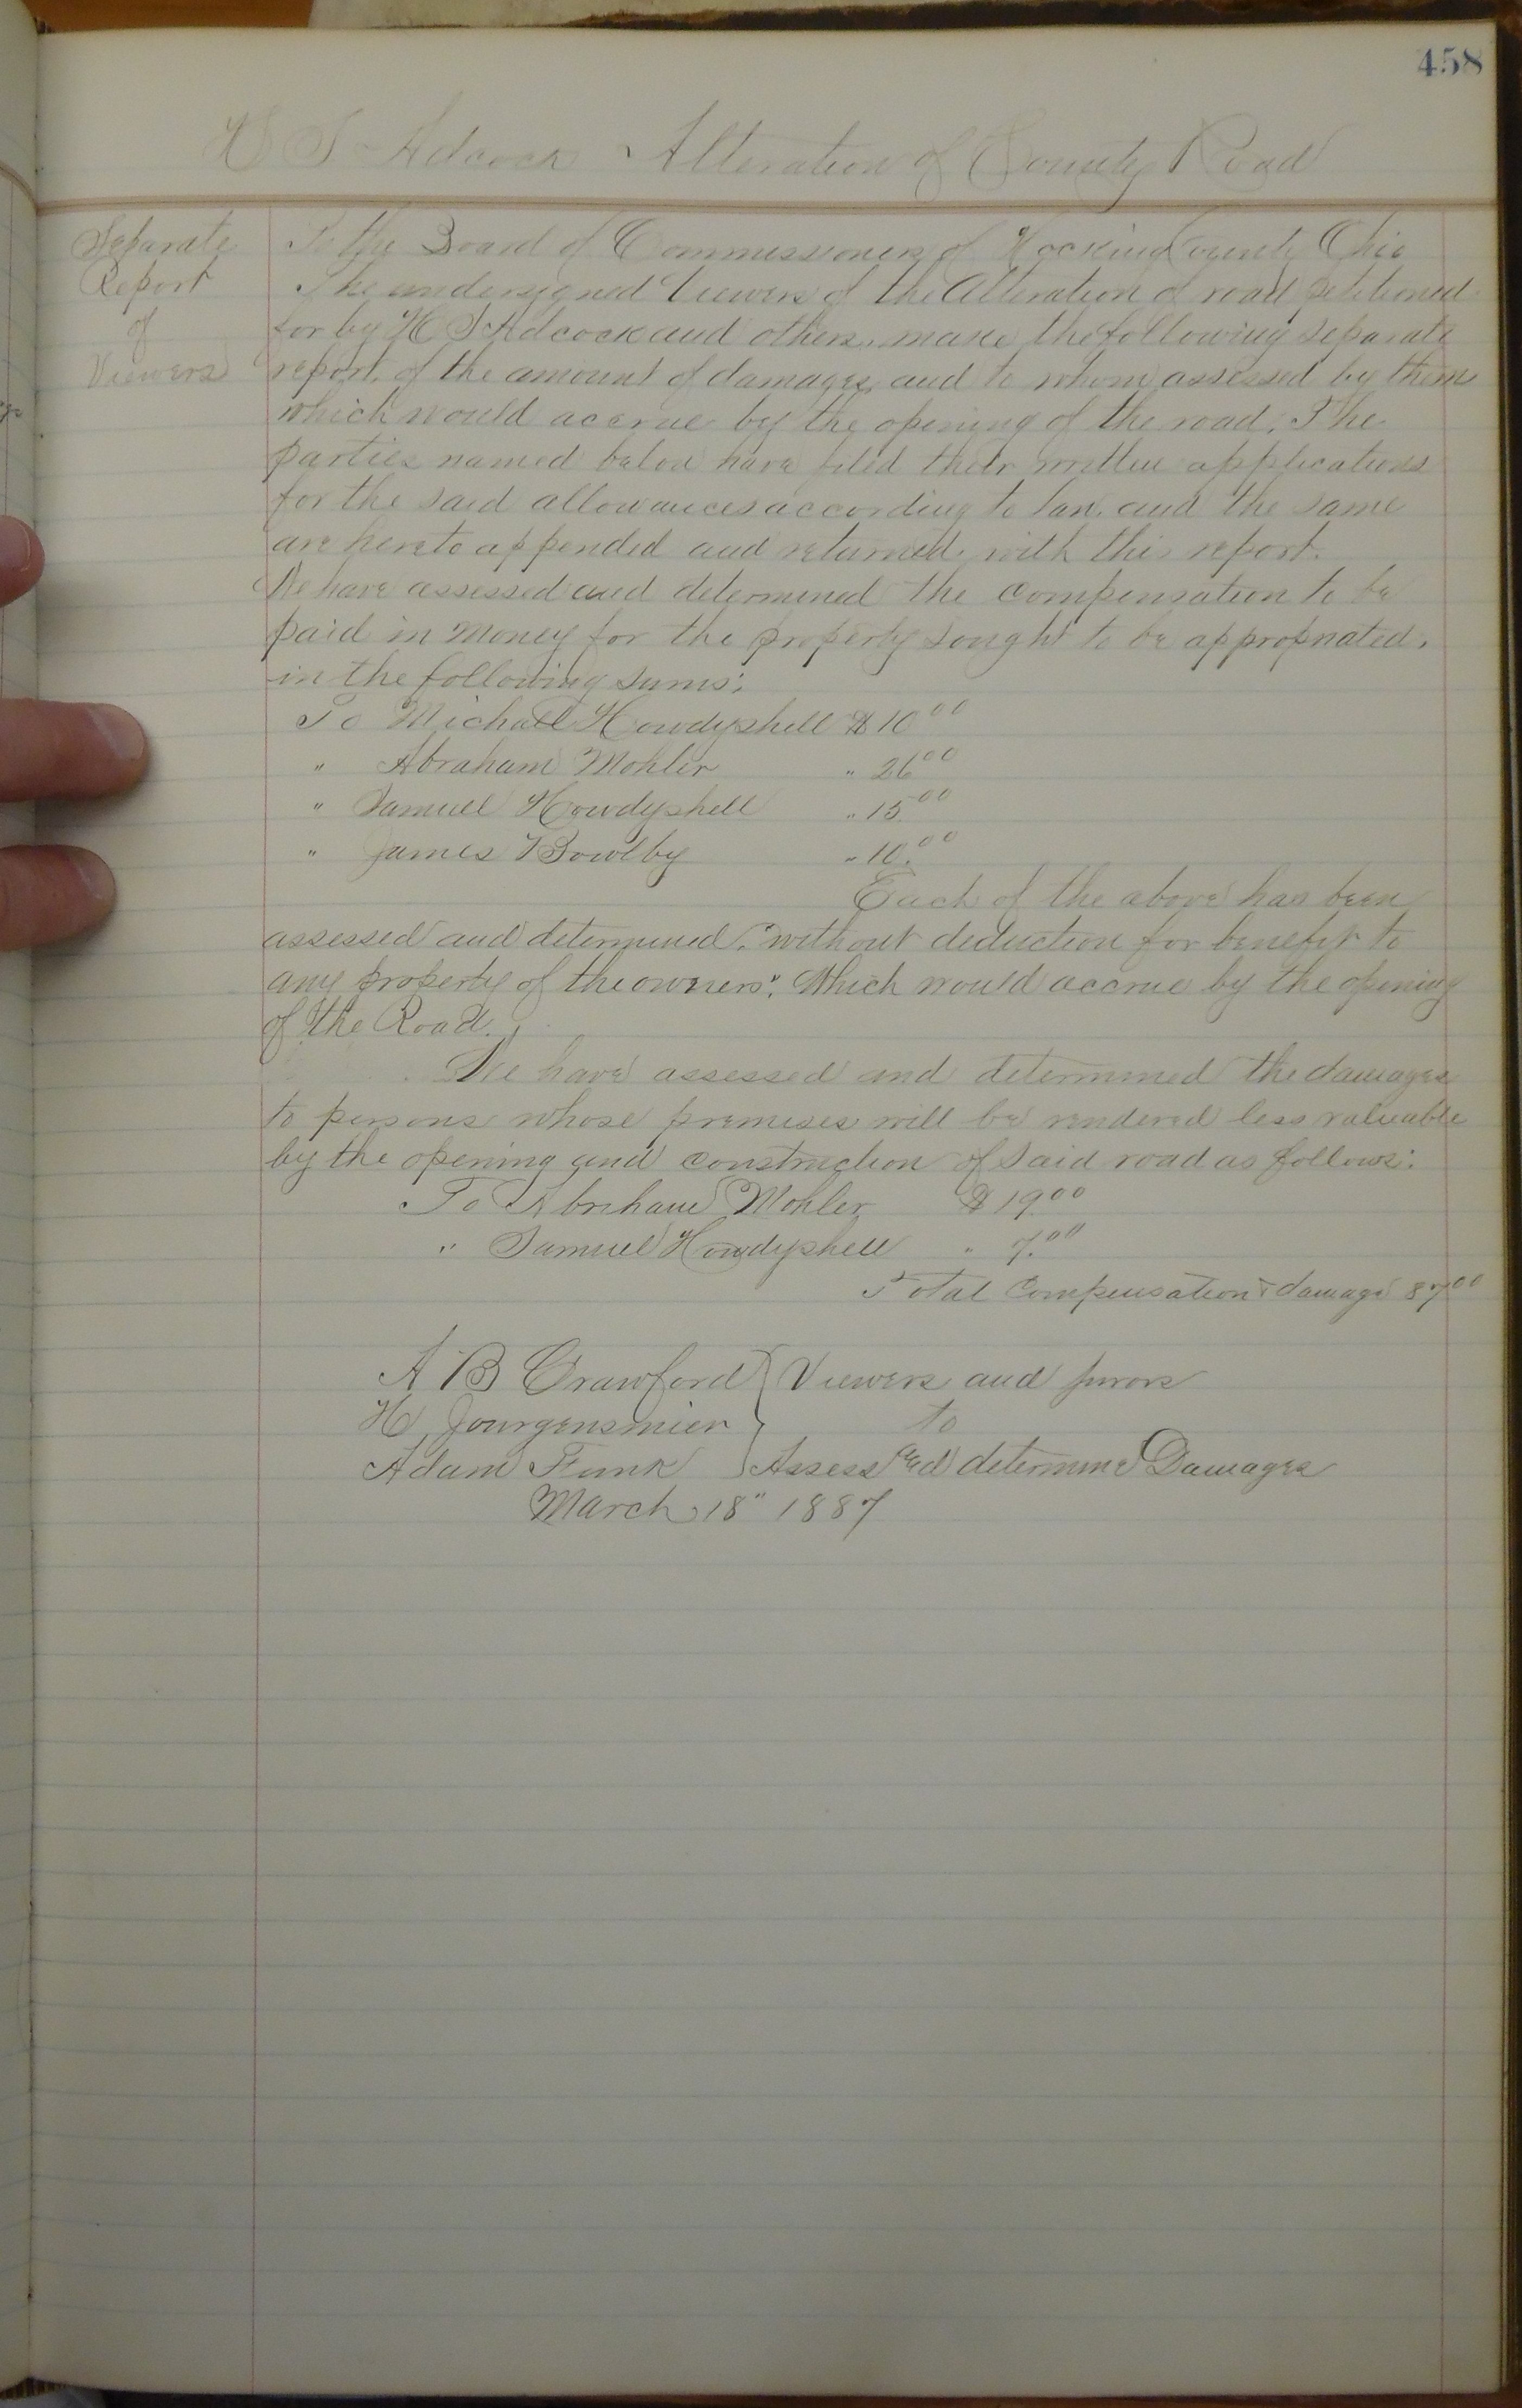 458
H S Adcock Alteration of County Road
Separate
Report
of
Viewers
To the Board of Commissioners of Hocking County Ohio
The undersigned Viewers of the Alteration of road petitioned
for by H S Adcock and others, make the following separate
report, of the amount of damages, and to whom assessed by them
which would accrue by the opening of the road. The
parties named below have filed their written applications
for the said allowances according to law, and the same
are hereto appended and returned with this report.
We have assessed and determined the compensation to be
paid in money for the property sought to be appropriated,
in the following sums:
To Michael Howdyshell $10 00
" Abraham Mohler " 26 00
" Samuel Howdyshell " 15.00
" James Bowlby " 10.00
Each of the above has been
assessed and determined, "without deduction for benefit to
any property of the owners", Which would accrue by the opening
of the Road.
We have assessed and determined the damages
to persons whose premises will be rendered less valuable
by the opening and construction of said road as follows:
To Abriham Mohler $ 19.00
" Samuel Howdyshell " 7.00
Total Compensation & damage 87 00
A B Crawford } Viewers and jurors
H Jourgensmier } to
Adam Funk } Assess and determine Damages
March 18" 1887